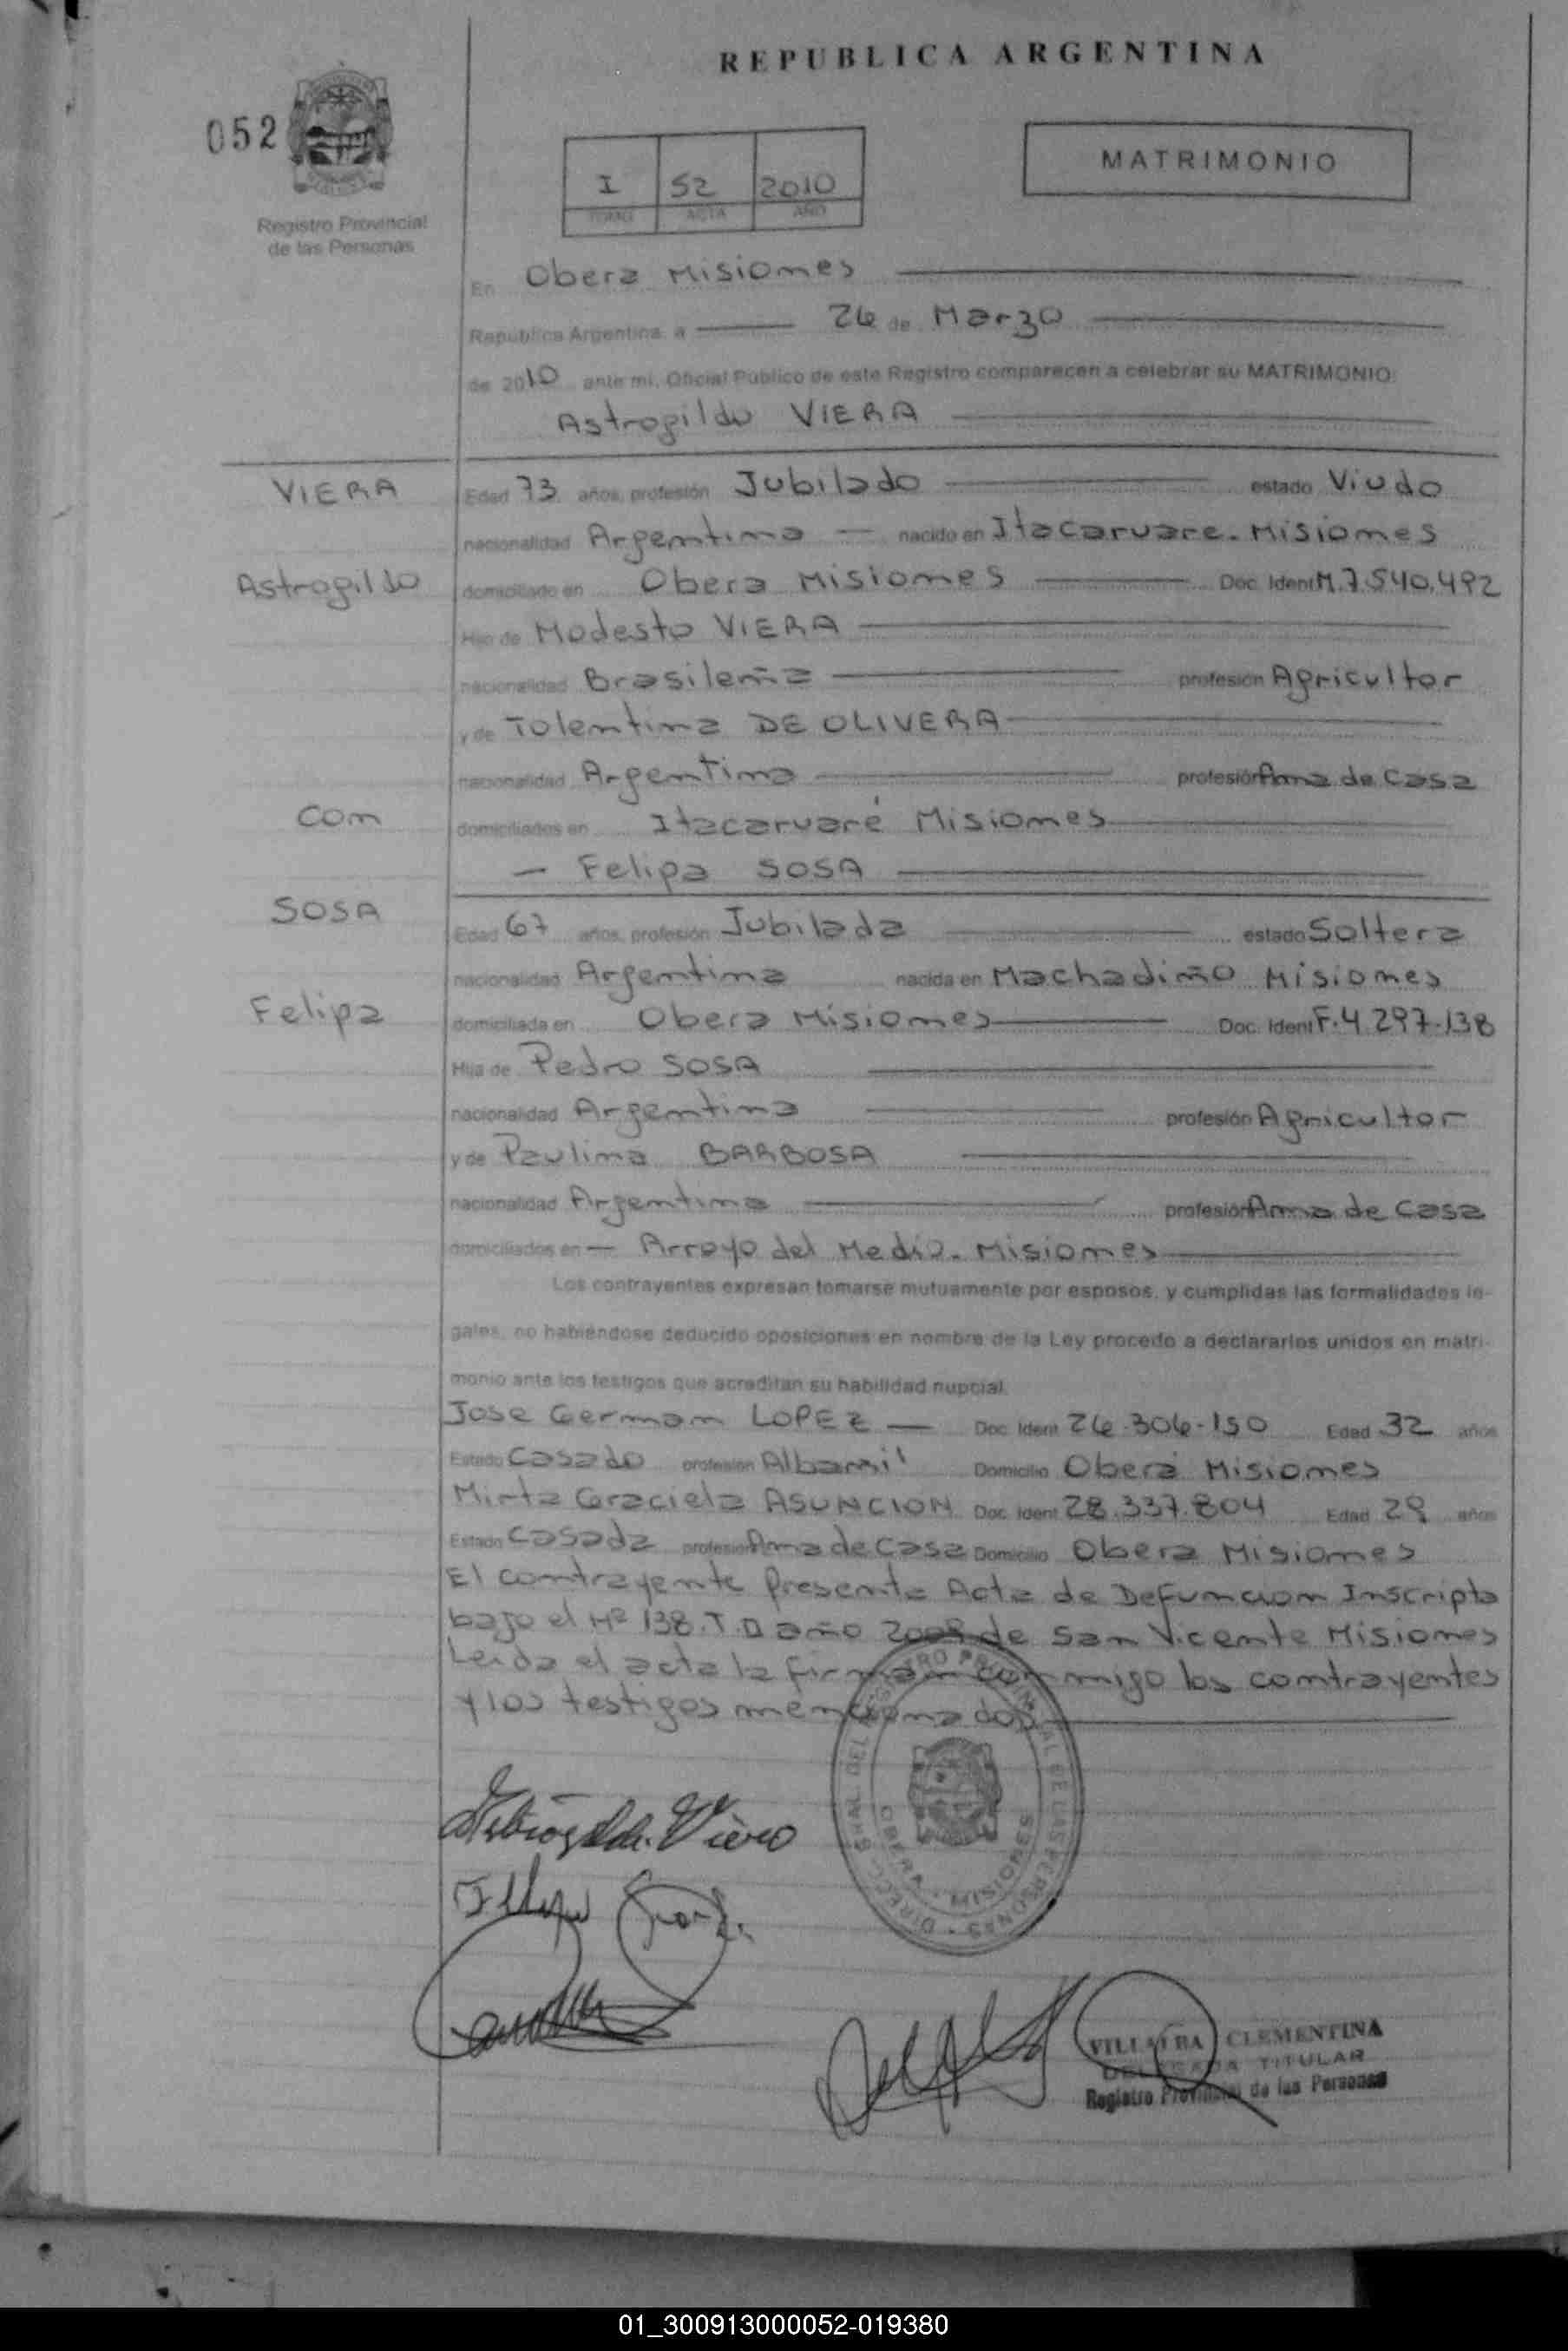 REPUBLICA ARGENTINA
052
MATRIMONIO
I 52 2010
TOMO ACTA AÑO
Registro Provincial
de las Personas
En Obera Misiones
República Argentina, a 26 de Marzo
de 2010 ante mi, Oficial Público de este Registro comparecen a celebrar su MATRIMONIO:
Astrogildo VIERA
VIERA
Edad 73 años, profesión Jubilado estado Viudo
nacionalidad Argentina nacido en Itacaruare. Misiones
Astrogildo
domiciliado en Obera Misiones Doc. Ident M.7.540.492
Hijo de Modesto VIERA
nacionalidad Brasileña profesión Agricultor
y de Tolentina DE OLIVERA
nacionalidad Argentina profesión Ama de Casa
Con
domiciliados en Itacaruaré Misiones
Felipa SOSA
SOSA
Edad 67 años, profesión Jubilada estado Soltera
nacionalidad Argentina nacida en Machadiño Misiones
Felipa
domiciliada en Obera Misiones Doc. Ident F.4.297.138
Hija de Pedro SOSA
nacionalidad Argentina profesión Agricultor
y de Paulina BARBOSA
nacionalidad Argentina profesión Ama de Casa
domiciliados en Arroyo del Medio. Misiones
Los contrayentes expresan tomarse mutuamente por esposos, y cumplidas las formalidades le-
gales, no habiéndose deducido oposiciones en nombre de la Ley procedo a declararlos unidos en matri-
monio ante los testigos que acreditan su habilidad nupcial.
Jose German LOPEZ Doc. Ident. 26.306.150 Edad 32 años
Estado Casado profesión Albañil Domicilio Oberá Misiones
Mirta Graciela ASUNCION Doc. Ident. 28.337.804 Edad 29 años
Estado Casada profesión Ama de Casa Domicilio Obera Misiones
El contrayente Presenta Acta de Defuncion Inscripta
bajo el Nº 138.T. año de San Vicente Misiones
Leida el acta la firman conmigo los contrayentes
y los testigos mencionados
DIRECC. GRAL. DEL REGISTRO PROVINCIAL DE LAS PERSONAS
OBERA - MISIONES
VILLALBA CLEMENTINA
DELEGADA TITULAR
Registro Provincial de las Personas
01_300913000052-019380